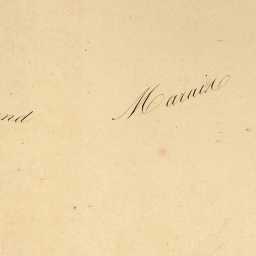 nd
Marais